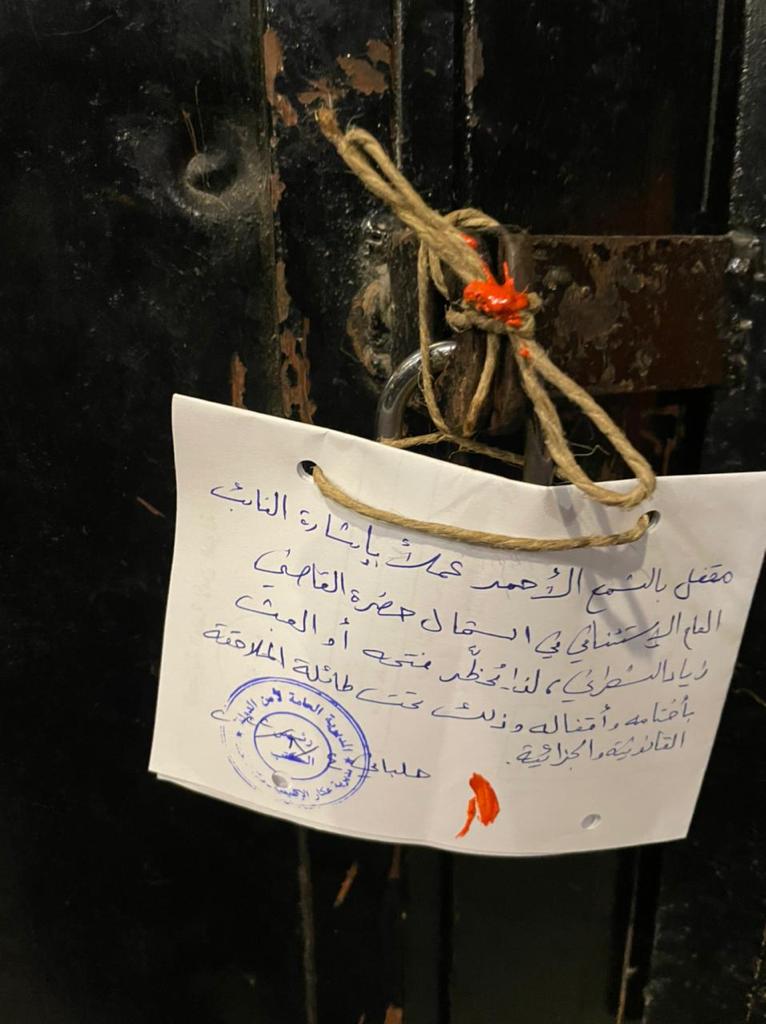 مقفل بالشمع الأحمر عملاً بإشارة النائب
العام الإستئنافي في الشمال حضرة القاضي
زياد الشعراني، لذا يُحظَّر فتحه أو العبث
بأختامه وأقفاله وذلك تحت طائلة الملاحقة
القانونية والجزائية.
حلبا في
المديرية العامة لأمن الدولة
مديرية عكار الإقليمية